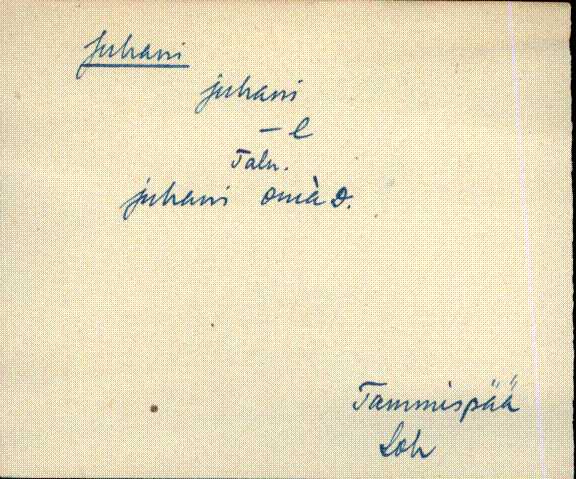 Juhani
juhani
– l
Talu.
juhani omàD.
Tammispää
Loh